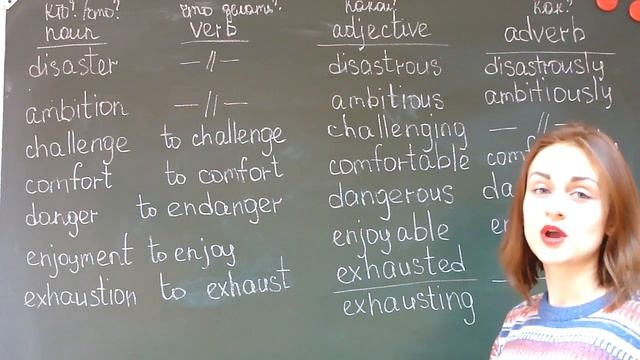 Кто? / Что? что делать? какой? как?
noun verb adjective adverb
disaster — // — disastrous disastrously
ambition — // — ambitious ambitiously
challenge to challenge challenging — // —
comfort to comfort comfortable
danger to endanger dangerous
enjoyment to enjoy enjoyable
exhaustion to exhaust exhausted
exhausting